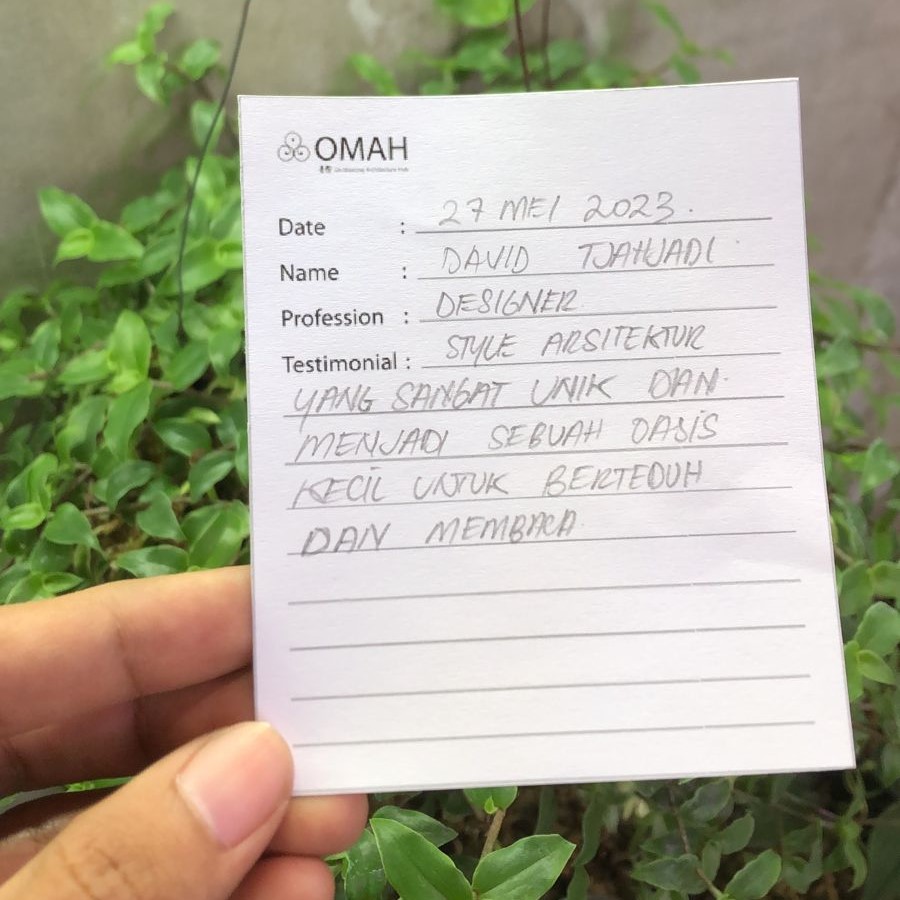 OMAH
Date : 27 MEI 2023.
Name : DAVID TJAHJADI
Profession : DESIGNER
Testimonial : STYLE ARSITEKTUR
YANG SANGAT UNIK DAN
MENJADI SEBUAH OASIS
KECIL UNTUK BERTEDUH
DAN MEMBACA